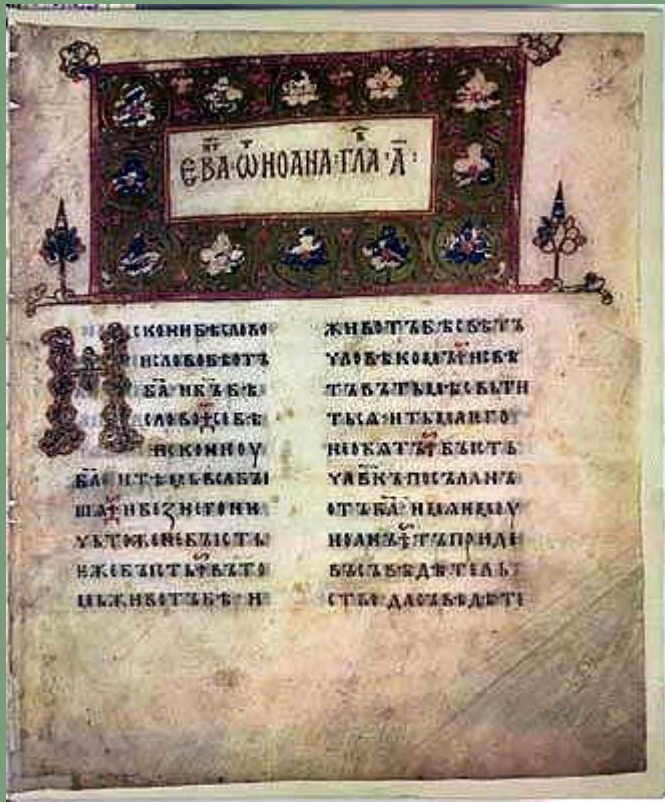 ЕВА҃Г · Ѿ ИОАНА · ГЛА҃В · А҃ :
ИСКОНИ БѢ СЛОВО
И СЛОВО БѢ ОТЪ
Б҃А И Б҃Ъ БѢ
СЛОВО СЕ БѢ
ИСКОНИ ОУ
Б҃А И ТѢМЬ ВЬСА БЫ
ША И БЕЗ НЕГО НИ
ЧЬТОЖЕ НЕ БЫСТЬ
ѤЖЕ БЫСТЬ ВЪ ТО
МЬ ЖИВОТЪ БѢ И
ЖИВОТЪ БѢ СВѢТЪ
ЧЛОВѢКОМЪ И СВѢ
ТЪ ВЪ ТЬМѢ СВЬТИ
ТЬСѦ И ТЬМА ѤГО
НЕ ОБѦТЪ БЫСТЬ
ЧЛВ҃КЪ ПОСЪЛАНЪ
ОТЪ Б҃А ИМѦ ѤМОУ
ИОАНЪ ТЪ ПРИДЕ
ВЪ СЪВѢДѢТЕЛЬ
СТВО ДА СЪВѢДѢТЕ